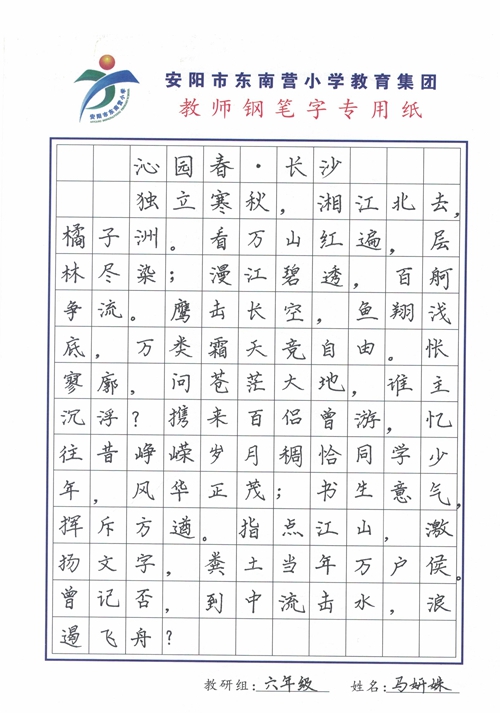 安阳市东南营小学
安阳市东南营小学教育集团
教师钢笔字专用纸
沁园春·长沙
独立寒秋，湘江北去，
橘子洲。看万山红遍，层
林尽染；漫江碧透，百舸
争流。鹰击长空，鱼翔浅
底，万类霜天竞自由。怅
寥廓，问苍茫大地，谁主
沉浮？携来百侣曾游，忆
往昔峥嵘岁月稠恰同学少
年，风华正茂；书生意气，
挥斥方遒。指点江山，激
扬文字，粪土当年万户侯。
曾记否，到中流击水，浪
遏飞舟？
教研组：六年级 姓名：马妍姝